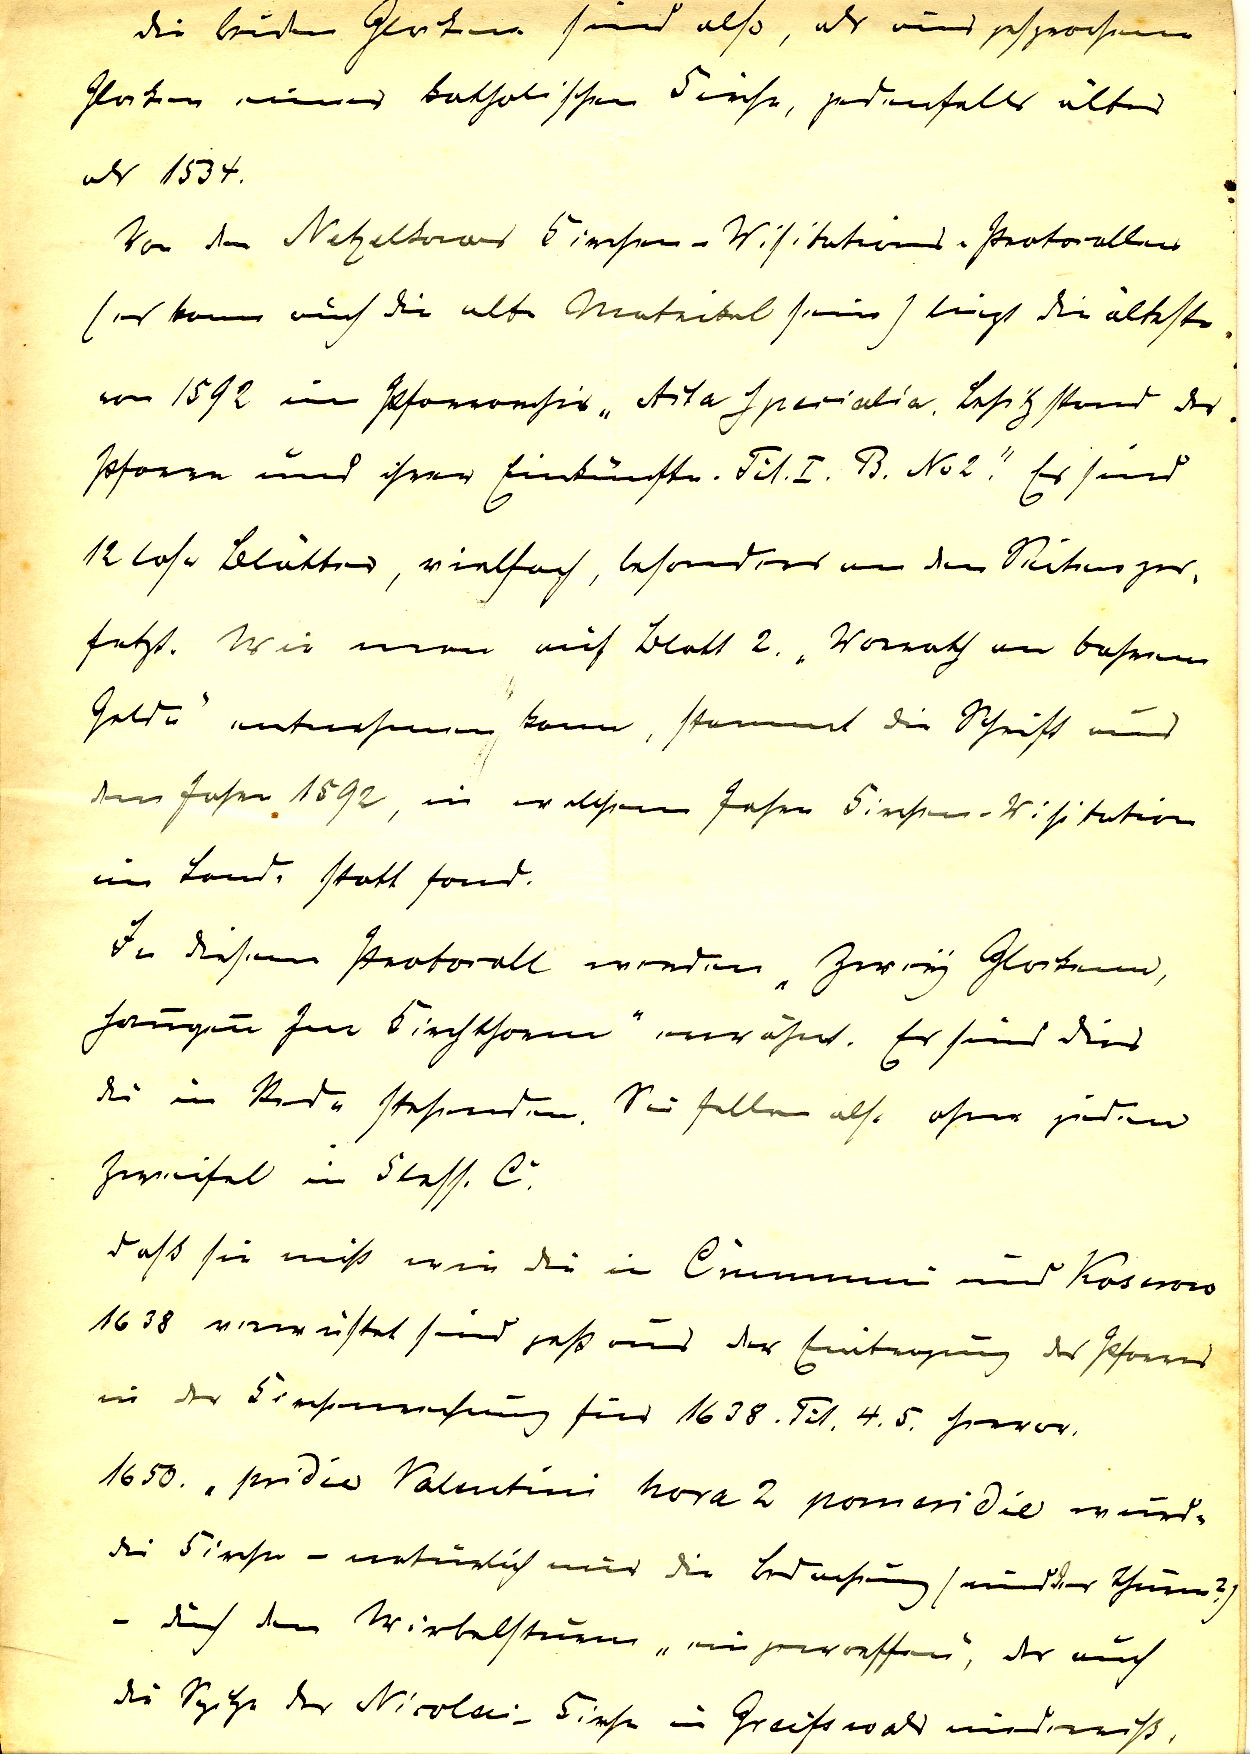 Die beiden Glocken sind also, als ausgesprochene
Glocken einer katholischen Kirche, jedenfalls älter
als 1534.
Von den Netzelkower Kirchen-Visitations-Protocollen
(es kann auch die alte Matrikel sein) liegt die älteste
von 1592 im Pfarrarchiv „Acta specialia. Besitzstand der
Pfarre und ihrer Einkünfte. Tit. I. B. No 2." Es sind
12 lose Blätter, vielfach, besonders an den Seiten zer-
fetzt. Wie man auf Blatt 2. „Vorrath an bahrem
Gelde" entnehmen kann, stammt die Schrift aus
dem Jahre 1592, in welchem Jahre Kirchen-Visitation
im Lande statt fand.
In diesem Protocoll werden „Zweÿ Glockenn,
hangen Im Kirchthorm" erwähnt. Es sind dies
die in Rede stehenden. Sie fallen also ohne jeden
Zweifel in Klasse C.
Daß sie nicht wie die in Crummin und Koserow
1638 verwüstet sind geht aus der Eintragung des Pfarrers
in der Kirchenrechnung für 1638. Tit. 4. 5. hervor.
1650. „pridie Valentini hora 2 pomeridie wurde
die Kirche - natürlich nur die Bedachung (und der Thurm?)
- durch den Wirbelsturm „eingeworffen", der auch
die Spitze der Nicolai-Kirche in Greifswald niederriß.